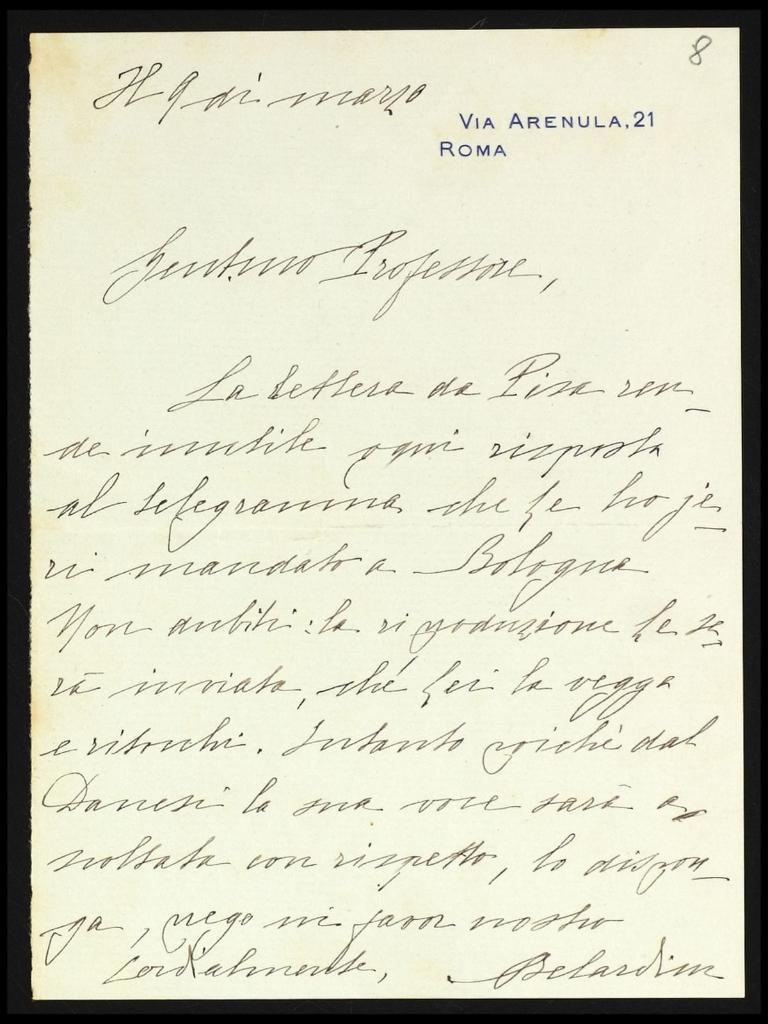 8
Il 9 di marzo
VIA ARENULA, 21
ROMA
Gent.mo Professore,
La lettera da Pisa ren-
de inutile ogni risposta
al telegramma che Le ho je-
ri mandato a Bologna
Non dubiti: la riproduzione Le sa-
rà inviata, ché Lei la vegga
e ritocchi. Intanto poiché dal
Danesi la sua voce sarà a-
scoltata con rispetto, lo dispon-
ga, prego in favor nostro
Cordialmente, Belardini